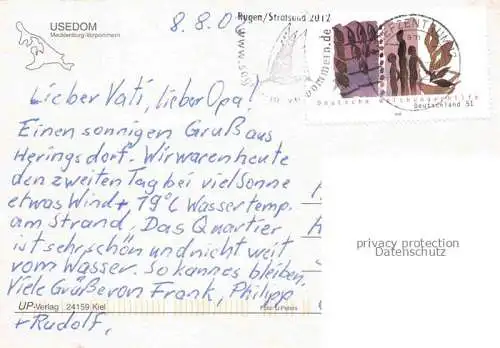 USEDOM
Mecklenburg-Vorpommern
8.8.0
Rügen/Stralsund 2012
Deutsche Welthungerhilfe
Deutschland 51
Lieber Vati, lieber Opa!
Einen sonnigen Gruß aus
Heringsdorf. Wir waren heute
den zweiten Tag bei viel Sonne
etwas Wind, 19°C Wassertemp.
am Strand. Das Quartier
ist sehr schön und nicht weit
vom Wasser. So kann es bleiben.
Viele Grüße von Frank, Philipp
+ Rudolf.
privacy protection
Datenschutz
UP-Verlag 24159 Kiel